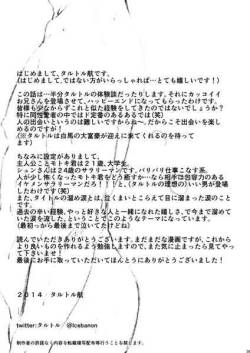 はじめまして、タルトル航です。
(はじめまして、ではない方がいらっしゃれば…とても嬉しいです！)
この話は…半分タルトルの体験談だったりします。それにカッコイイ
お兄さんを登場させて、ハッピーエンドになってもらったわけです。
皆様も少なからずこれと似た経験をしてきているのではないでしょうか。
特に同性愛者の中では下定番のあるあるでは(笑)
人の出会いというのは難しいですからね～、だからこそ出会いを楽し
めるのですが！
(※タルトルは白馬の大富豪が迎えに来てくれるのを待って
ます)
ちなみに設定がありまして、
主人公ことモトキ君は21歳、大学生。
シュンさんは24歳のサラリーマンです。バリバリ仕事こなす系。
人が少し怖くなったモトキ君をどう癒すか…なら相手は包容力のある
イケメンサラリーマンだろ！！と、(タルトルの理想の)いい男が登場
したわけですね。
また、タイトルの溜め涙とは、泣くまいとこらえて目に溜まった涙のこと
です。
過去の辛い経験、やっと好きな人と一緒になれた嬉しさ、で今まで溜めて
いた涙を流して、という、このようなテーマになっています。
(最初っから最後まで泣いてたけどね)
読んでいただきありがとうございます。まだまだ漫画ですが、これか
らより良いものを作れるよう勉強しますので、気に止まったら見てやっ
て下さいませ！
最後にお手に取っていただいてほんとうにありがとうございました！
2014 タルトル航
twitter:タルトル @Icebanon
制作者の許諾なく内容を転載複写配布等行うことを禁じます。